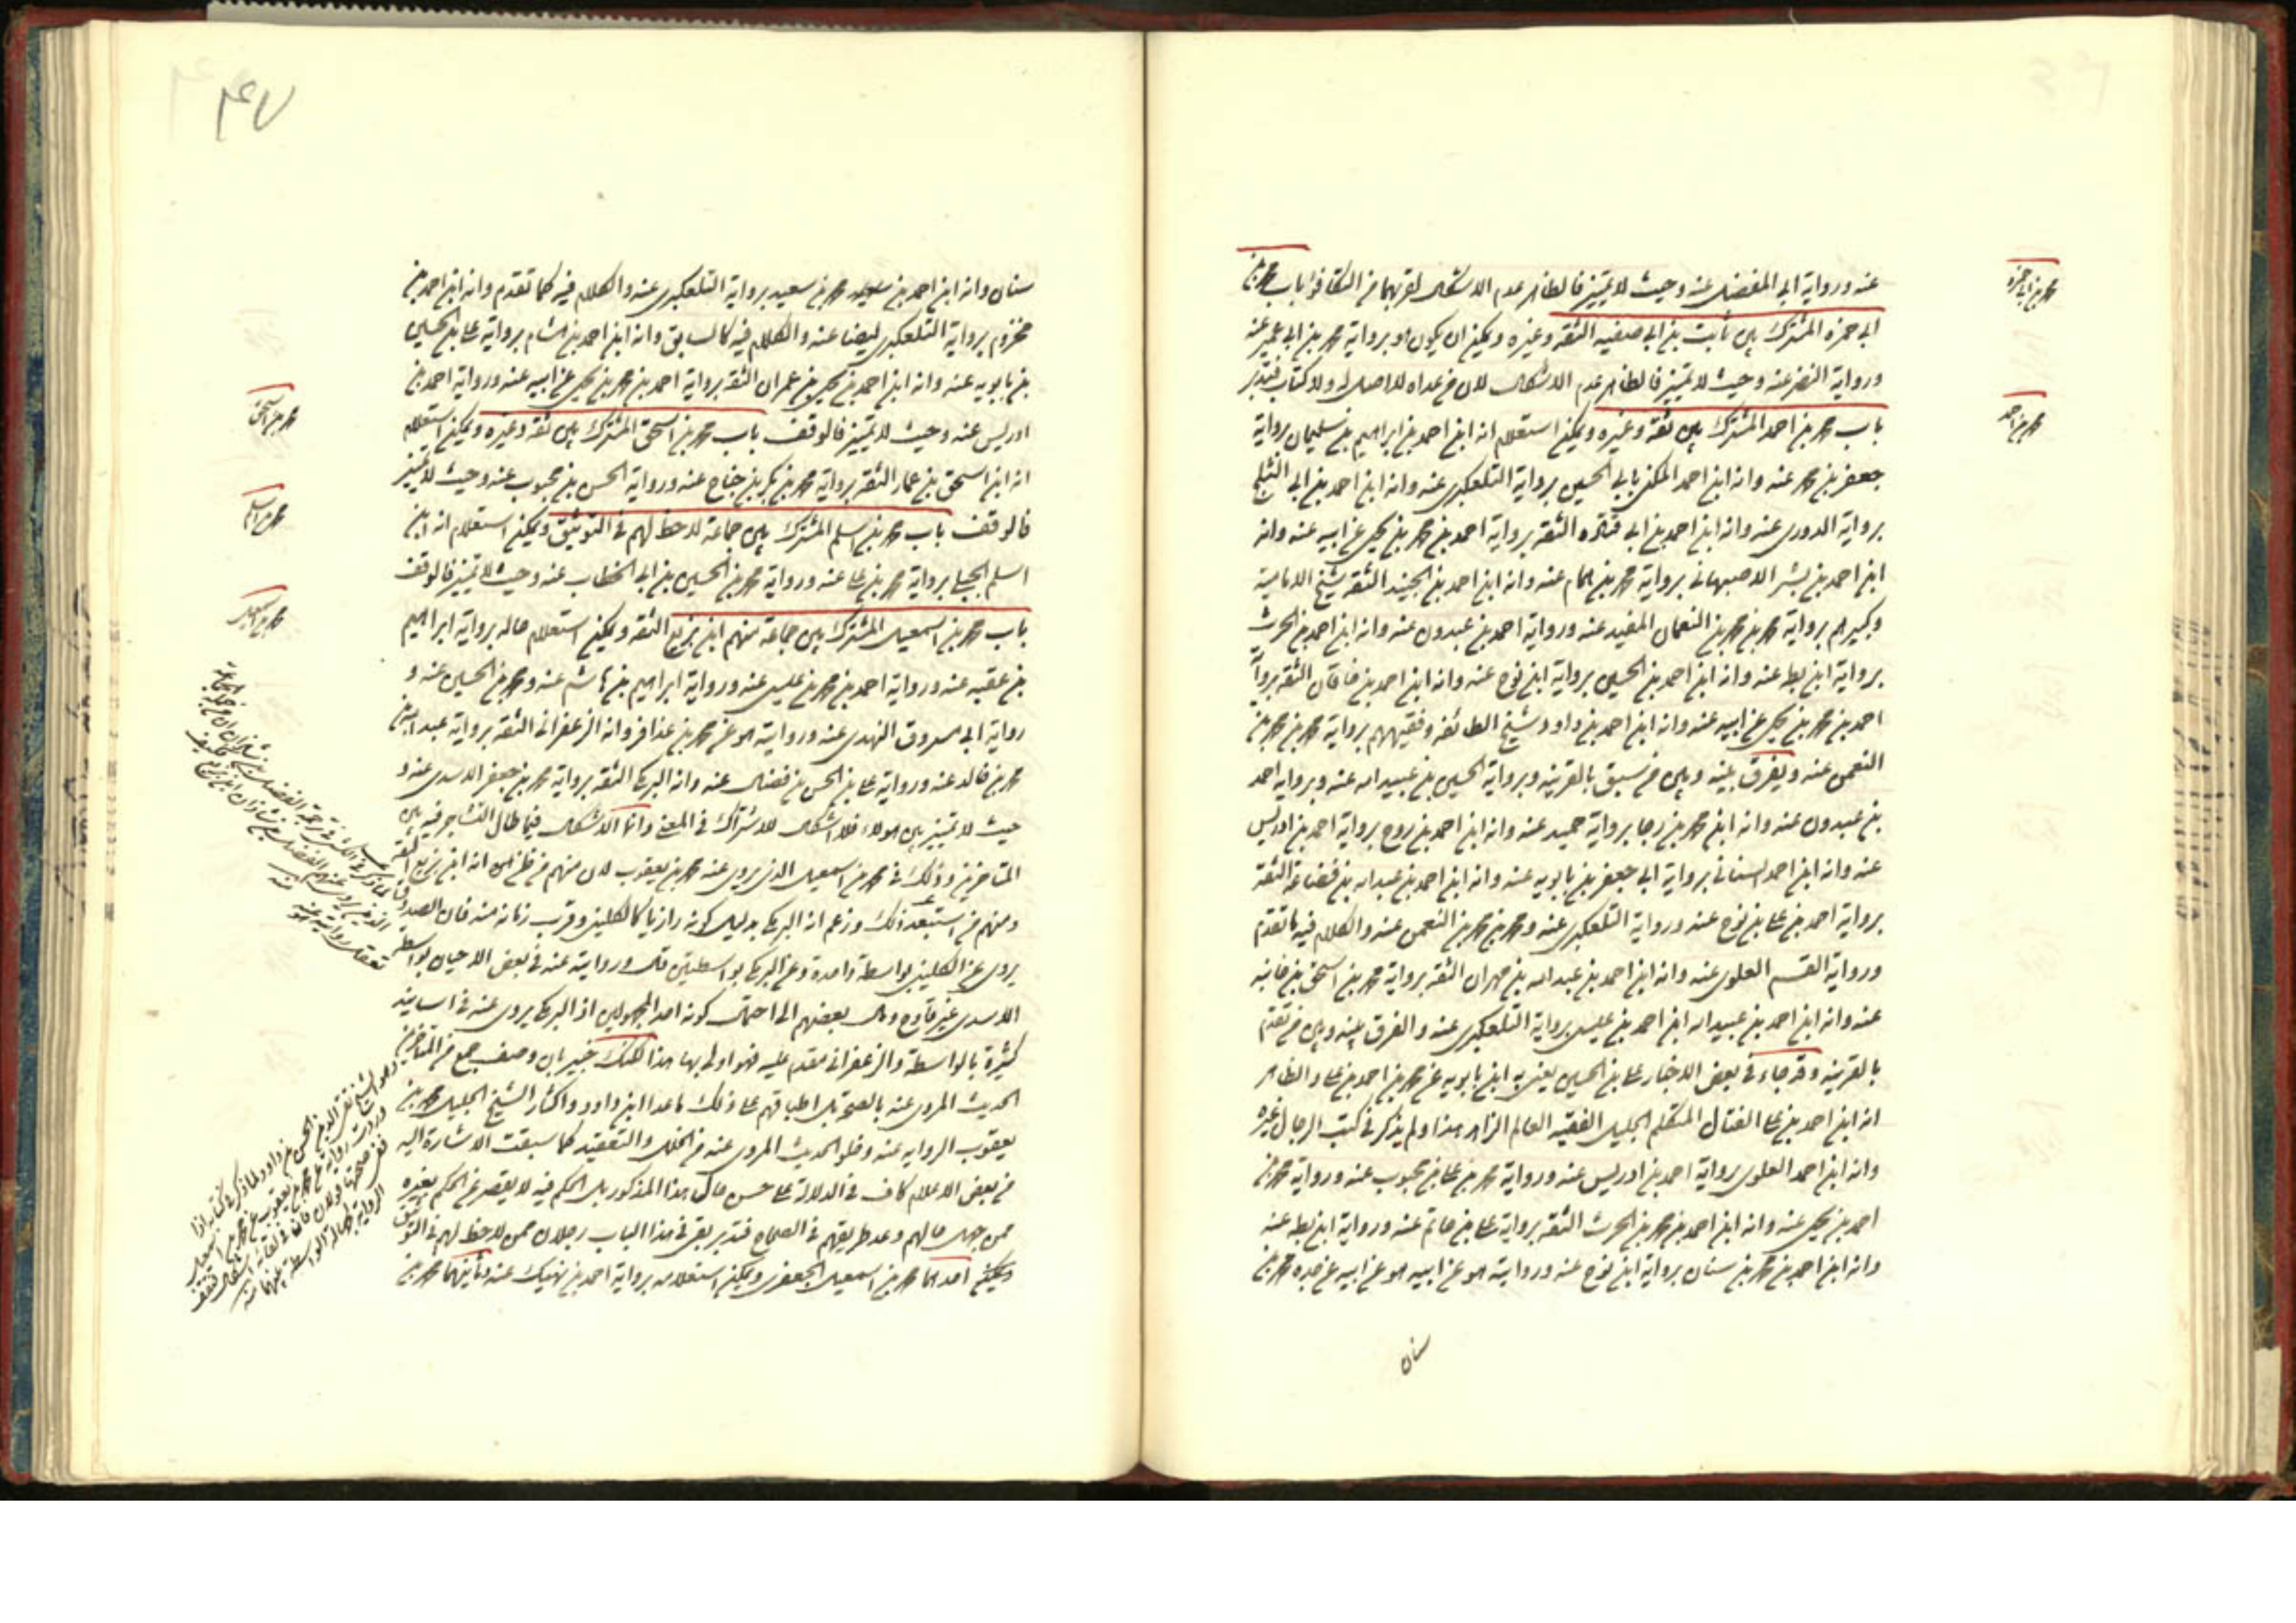 محمد بن ابي حمزه
محمد بن احمد
عنه ورواية ابي المفضل عنه وحيث لا تميز فالظاهر عدم الاشكال لقربهما من التكافؤ باب محمد بن
ابي حمزه المشترك بين ثابت بن ابي صفيه الثقه وغيره ويمكن ان يكون هو برواية محمد بن ابي عمير عنه
ورواية النضر عنه وحيث لا تميز فالظاهر عدم الاشكال لان من عداه لا اصل له ولا كتاب فتدبر
باب محمد بن احمد المشترك بين ثقه وغيره ويمكن استعلام انه ابن احمد بن ابراهيم بن سليمان برواية
جعفر بن محمد عنه وانه ابن احمد المكنى بابي الحسين برواية التلعكبري عنه وانه ابن احمد بن ابي الثلج
برواية الدوري عنه وانه ابن احمد بن ابي قتاده الثقه برواية احمد بن محمد بن يحيى عن ابيه عنه وانه
ابن احمد بن بشر الاصبهاني برواية محمد بن همام عنه وانه ابن احمد بن الجنيد الثقه شيخ الاماميه
وكبيرهم برواية محمد بن محمد بن النعمان المفيد عنه ورواية احمد بن عبدون عنه وانه ابن احمد بن الحرث
برواية ابن بطه عنه وانه ابن احمد بن الحسين برواية ابن نوح عنه وانه ابن احمد بن خاقان الثقه برواية
احمد بن محمد بن يحيى عن ابيه عنه وانه ابن احمد بن داود شيخ الطائفه وفقيههم برواية محمد بن محمد بن
النعمن عنه ويفرق بينه وبين من سبق بالقرينه وبرواية الحسين بن عبيد الله عنه وبرواية احمد
بن عبدون عنه وانه ابن محمد بن رجا برواية حميد عنه وانه ابن احمد بن روح برواية احمد بن ادريس
عنه وانه ابن احمد السناني برواية ابي جعفر بن بابويه عنه وانه ابن احمد بن عبد الله بن قضاعة الثقه
برواية احمد بن علي بن نوح عنه ورواية التلعكبري عنه ومحمد بن محمد بن النعمن عنه والكلام فيه ما تقدم
ورواية القسم العلوي عنه وانه ابن احمد بن عبد الله بن مهران الثقه برواية محمد بن اسحق بن خانبه
عنه وانه ابن احمد بن عبيد الله ابن احمد بن عيسى برواية التلعكبري عنه والفرق بينه وبين من تقدم
بالقرينه وقد جاء في بعض الاخبار علي بن الحسين يعني به ابن بابويه عن محمد بن احمد بن علي والظاهر
انه ابن احمد بن علي الفتال المتكلم الجليل الفقيه العالم الزاهد هذا ولم يذكر في كتب الرجال غيره
وانه ابن احمد العلوي برواية احمد بن ادريس عنه ورواية محمد بن علي بن محبوب عنه ورواية محمد بن
احمد بن يحيى عنه وانه ابن احمد بن محمد بن الحرث الثقه برواية علي بن حاتم عنه ورواية ابن بطه عنه
وانه ابن احمد بن محمد بن سنان برواية ابن نوح عنه وروايته هو عن ابيه هو عن ابيه عن جده محمد بن
سنان
٤٧
سنان وانه ابن احمد بن محمد بن سعيد برواية التلعكبري عنه والكلام فيه كما تقدم وانه ابن احمد بن
مخزوم برواية التلعكبري ايضا عنه والكلام فيه كالسابق وانه ابن احمد بن هشام برواية علي بن الحسين
بن بابويه عنه وانه ابن احمد بن يحيى بن عمران الثقه برواية احمد بن محمد بن يحيى عن ابيه عنه ورواية احمد بن
ادريس عنه وحيث لا تميز فالوقف باب محمد بن اسحق المشترك بين ثقه وغيره ويمكن استعلام
انه ابن اسحق بن عمار الثقه برواية محمد بن بكر بن جناح عنه ورواية الحسن بن محبوب عنه وحيث لا تميز
فالوقف باب محمد بن اسلم المشترك بين جماعة لا حظ لهم في التوثيق ويمكن استعلام انه ابن
اسلم الجبلي برواية محمد بن علي عنه ورواية محمد بن الحسين بن ابي الخطاب عنه وحيث لا تميز فالوقف
باب محمد بن اسمعيل المشترك بين جماعة منهم ابن بزيع الثقه ويمكن استعلام حاله برواية ابراهيم
بن عقبه عنه ورواية احمد بن محمد بن عيسى عنه ورواية ابراهيم بن هاشم عنه ومحمد بن الحسين عنه و
رواية ابي مسروق النهدي عنه وروايته هو عن محمد بن عذافر وانه الزعفراني الثقه برواية عبد الله بن
محمد بن خالد عنه ورواية علي بن الحسن بن فضال عنه وانه البرمكي الثقه برواية محمد بن جعفر الاسدي عنه و
حيث لا تميز بين هولاء فلا اشكال للاشتراك في المعنى وانما الاشكال فيما طال التشاجر فيه بين
المتاخرين وذلك في محمد بن اسمعيل الذي يروي عنه محمد بن يعقوب لان منهم من ظن انه ابن بزيع الثقه
ومنهم من استبعد ذلك وزعم انه البرمكي بدليل كونه رازيا كالكليني وقرب زمانه منه فان الصدوق
يروي عن الكليني بواسطة واحدة وعن البرمكي بواسطتين وروايته عنه في بعض الاحيان بواسطه
الاسدي غير قادح ومال بعضهم الى احتمال كونه احد المجهولين اذ البرمكي يروي عنه في اسانيد
كثيرة بالواسطة والزعفراني مقدم عليه فهو اولى بها هذا لكنك خبير بان وصف جمع من المتاخرين
الحديث المروي عنه بالصحة بل اطباقهم على ذلك ما عدا ابن داود واكثار الشيخ الجليل محمد بن
يعقوب الروايه عنه وخلو الحديث المروي عنه من الخلل والتعقيد كما سبقت الاشارة اليه
من بعض الاعلام كاف في الدلالة على حسن حال هذا المذكور بل الحكم فيه لا يقصر عن الحكم بغيره
ممن جهل حالهم وعد طريقهم في الصحاح فتدبر بقي في هذا الباب رجلان ممن لا حظ لهم في التوثيق
ويمكن احدهما محمد بن اسمعيل الجعفري ويمكن استعلامه برواية احمد بن نهيك عنه وثانيهما محمد بن
محمد بن اسحق
محمد بن اسلم
محمد بن اسمعيل